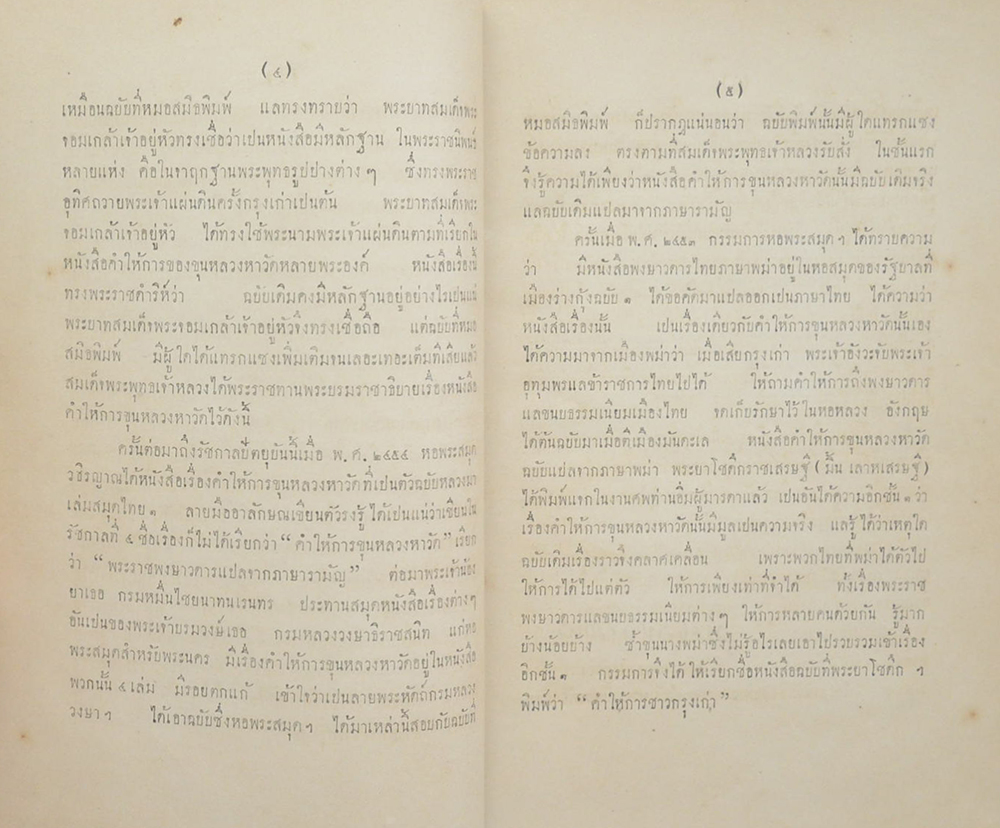 (๔)
เหมือนฉบับที่หมอสมิธพิมพ์ แลทรงทราบว่า พระบาทสมเด็จพระ
จอมเกล้าเจ้าอยู่หัวทรงเชื่อว่าเป็นหนังสือมีหลักฐาน ในพระราชนิพนธ์
หลายแห่ง คือในจาฤกฐานพระพุทธรูปปางต่าง ๆ ซึ่งทรงพระราช
อุทิศถวายพระเจ้าแผ่นดินครั้งกรุงเก่าเป็นต้น พระบาทสมเด็จพระ
จอมเกล้าเจ้าอยู่หัว ได้ทรงใช้พระนามพระเจ้าแผ่นดินตามที่เรียกใน
หนังสือคำให้การของขุนหลวงหาวัดหลายพระองค์ หนังสือเรื่องนี้
ทรงพระราชดำริห์ว่า ฉบับเดิมคงมีหลักฐานอยู่อย่างไรเป็นแน่
พระบาทสมเด็จพระจอมเกล้าเจ้าอยู่หัวจึงทรงเชื่อถือ แต่ฉบับที่หมอ
สมิธพิมพ์ มีผู้ใดได้แทรกแซงเพิ่มเติมจนเลอะเทอะเต็มทีเสียแล้ว
สมเด็จพระพุทธเจ้าหลวงได้พระราชทานพระบรมราชาธิบายเรื่องหนังสือ
คำให้การขุนหลวงหาวัดไว้ดังนี้
ครั้นต่อมาถึงรัชกาลปัตยุบันนี้เมื่อ พ.ศ. ๒๔๕๔ หอพระสมุด
วชิรญาณได้หนังสือเรื่องคำให้การขุนหลวงหาวัดที่เป็นตัวฉบับหลวงมา
เล่มสมุดไทย ๑ ลายมืออาลักษณเขียนตัวรงรู้ได้เป็นแน่ว่าเขียนใน
รัชกาลที่ ๔ ชื่อเรื่องก็ไม่ได้เรียกว่า “คำให้การขุนหลวงหาวัด” เรียก
ว่า “พระราชพงษาวดารแปลจากภาษารามัญ” ต่อมาพระเจ้าน้อง
ยาเธอ กรมหมื่นไชยนาทนเรนทร ประทานสมุดหนังสือเรื่องต่างๆ
อันเป็นของพระเจ้าบรมวงษ์เธอ กรมหลวงวงษาธิราชสนิท แก่หอ
พระสมุดสำหรับพระนคร มีเรื่องคำให้การขุนหลวงหาวัดอยู่ในหนังสือ
พวกนั้น ๔ เล่ม มีรอยตกแก้ เข้าใจว่าเป็นลายพระหัตถ์กรมหลวง
วงษา ฯ ได้เอาฉบับซึ่งหอพระสมุด ฯ ได้มาเหล่านี้สอบกับฉบับที่
(๕)
หมอสมิธพิมพ์ ก็ปรากฏแน่นอนว่า ฉบับพิมพ์นั้นมีผู้ใดแทรกแซง
ข้อความลง ตรงตามที่สมเด็จพระพุทธเจ้าหลวงรับสั่ง ในชั้นแรก
จึงรู้ความได้เพียงว่าหนังสือคำให้การขุนหลวงหาวัดนั้นมีฉบับเดิมจริง
แลฉบับเดิมแปลมาจากภาษารามัญ
ครั้นเมื่อ พ.ศ. ๒๔๕๓ กรรมการหอพระสมุด ฯ ได้ทราบความ
ว่า มีหนังสือพงษาวดารไทยภาษาพม่าอยู่ในหอสมุดของรัฐบาลที่
เมืองร่างกุ้งฉบับ ๑ ได้ขอคัดมาแปลออกเป็นภาษาไทย ได้ความว่า
หนังสือเรื่องนั้น เป็นเรื่องเดียวกับคำให้การขุนหลวงหาวัดนั้นเอง
ได้ความมาจากเมืองพม่าว่า เมื่อเสียกรุงเก่า พระเจ้าอังวะจับพระเจ้า
อุทุมพรแลข้าราชการไทยไปได้ ให้ถามคำให้การถึงพงษาวดาร
แลขนบธรรมเนียมเมืองไทย จดเก็บรักษาไว้ในหอหลวง อังกฤษ
ได้ต้นฉบับมาเมื่อตีเมืองมันดะเล หนังสือคำให้การขุนหลวงหาวัด
ฉบับแปลจากภาษาพม่า พระยาโชดึกราชเศรษฐี (มิ้น เลาหเศรษฐี)
ได้พิมพ์แรกในงานศพท่านอิ่มผู้มารดาแล้ว เป็นอันได้ความอีกชั้น ๑ ว่า
เรื่องคำให้การขุนหลวงหาวัดนั้นมีมูลเป็นความจริง แลรู้ได้ว่าเหตุใด
ฉบับเดิมเรื่องราวจึงคลาศเคลื่อน เพราะพวกไทยที่พม่าได้ตัวไป
ให้การได้ไปแต่ตัว ให้การเพียงเท่าที่จำได้ ทั้งเรื่องพระราช
พงษาวดารแลขนบธรรมเนียมต่าง ๆ ให้การหลายคนด้วยกัน รู้มาก
บ้างน้อยบ้าง ซ้ำขุนนางพม่าซึ่งไม่รู้อไรเลยเอาไปรวบรวมเข้าเรื่อง
อีกชั้น ๑ กรรมการจึงได้ให้เรียกชื่อหนังสือฉบับที่พระยาโชดึก ฯ
พิมพ์ว่า “คำให้การชาวกรุงเก่า”